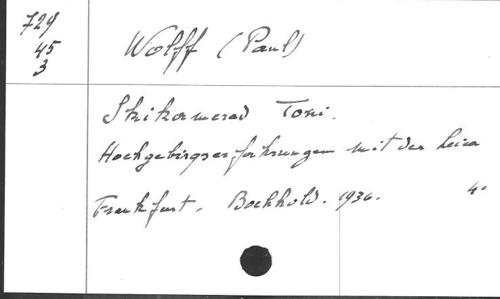 729
45
3
Wolff (Paul)
Skikamerad Toni.
Hochgebirgserfahrungen mit der Leica
Frankfurt. Bechhold. 1936. 4°